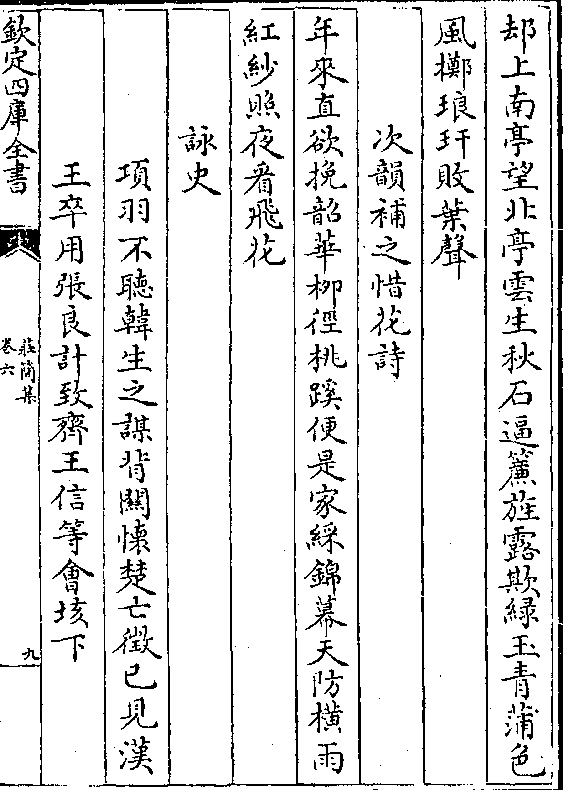 却上南亭望北亭雲生秋石逼簾旌露欺綠玉青蒲色
風擲琅玕敗葉聲
次韻補之惜花詩
年來直欲挽韶華柳徑桃蹊便是家綵錦幕天防橫雨
紅紗照夜看飛花
詠史
項羽不聽韓生之謀背關懷楚亡徵已見漢
王卒用張良計致齊王信等會垓下
欽定四庫全書
莊簡集
卷六
九